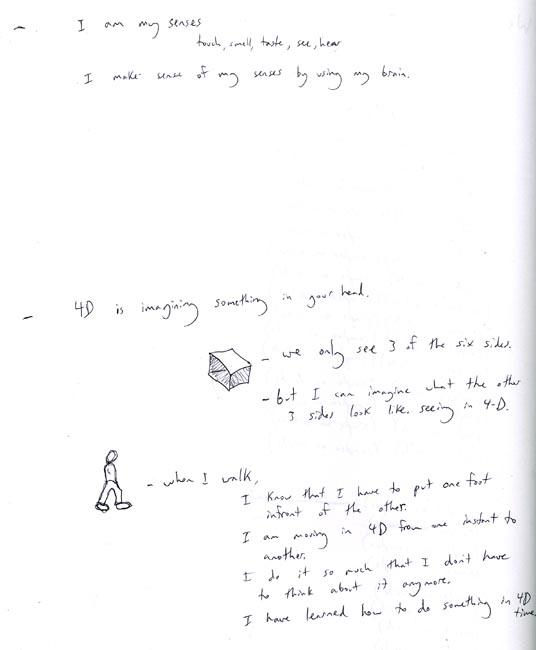 - I am my senses
touch, smell, taste, see, hear
I make sense of my senses by using my brain.
- 4D is imagining something in your head.
- we only see 3 of the six sides.
- but I can imagine what the other
3 sides look like. seeing in 4-D.
- when I walk,
I know that I have to put one foot
infront of the other.
I am moving in 4D from one instant to
another.
I do it so much that I don't have
to think about it anymore.
I have learned how to do something in 4D
time.